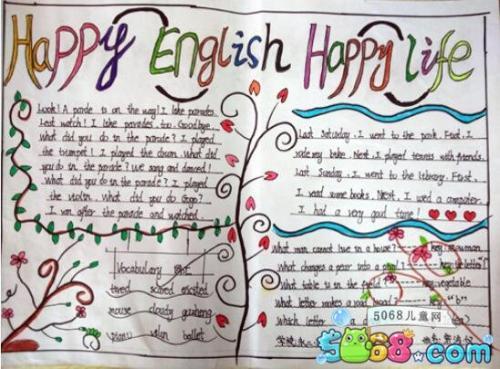 Happy English Happy life
Look! A parade is on the way! I like parades.
Let's watch! I like parades, too. Goodbye.
What did you do in the parade? I played
the trumpet! I played the drum. What did
you do in the parade? We sang and danced!
What did you do in the parade? I played
the violin. What did you do
I ran after the parade and watched.
Vocabulary
tired scared excited
mouse cloudy
piano violin ballet
Last Saturday. I went to the park. First. I
rode my bike. Next. I played tennis with friends.
Last Sunday. I went to the library. First.
I read some books. Next. I used a computer.
I had a very good time!
What man cannot live in a house? key: snowman
What changes a pear into a key: the letter "l"
What table is in the key: vegetable
What letter makes a road "b"
Which letter is a
学校
5068儿童网
5068.com